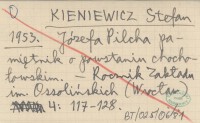 0 KIENIEWICZ Stefan
1953. Józefa Pilcha pa-
miętnik o powstaniu chocho-
łowskim. – Rocznik Zakładu
im. Ossolińskich (Wrocław)
4: 117-128.
BT/025/06/81